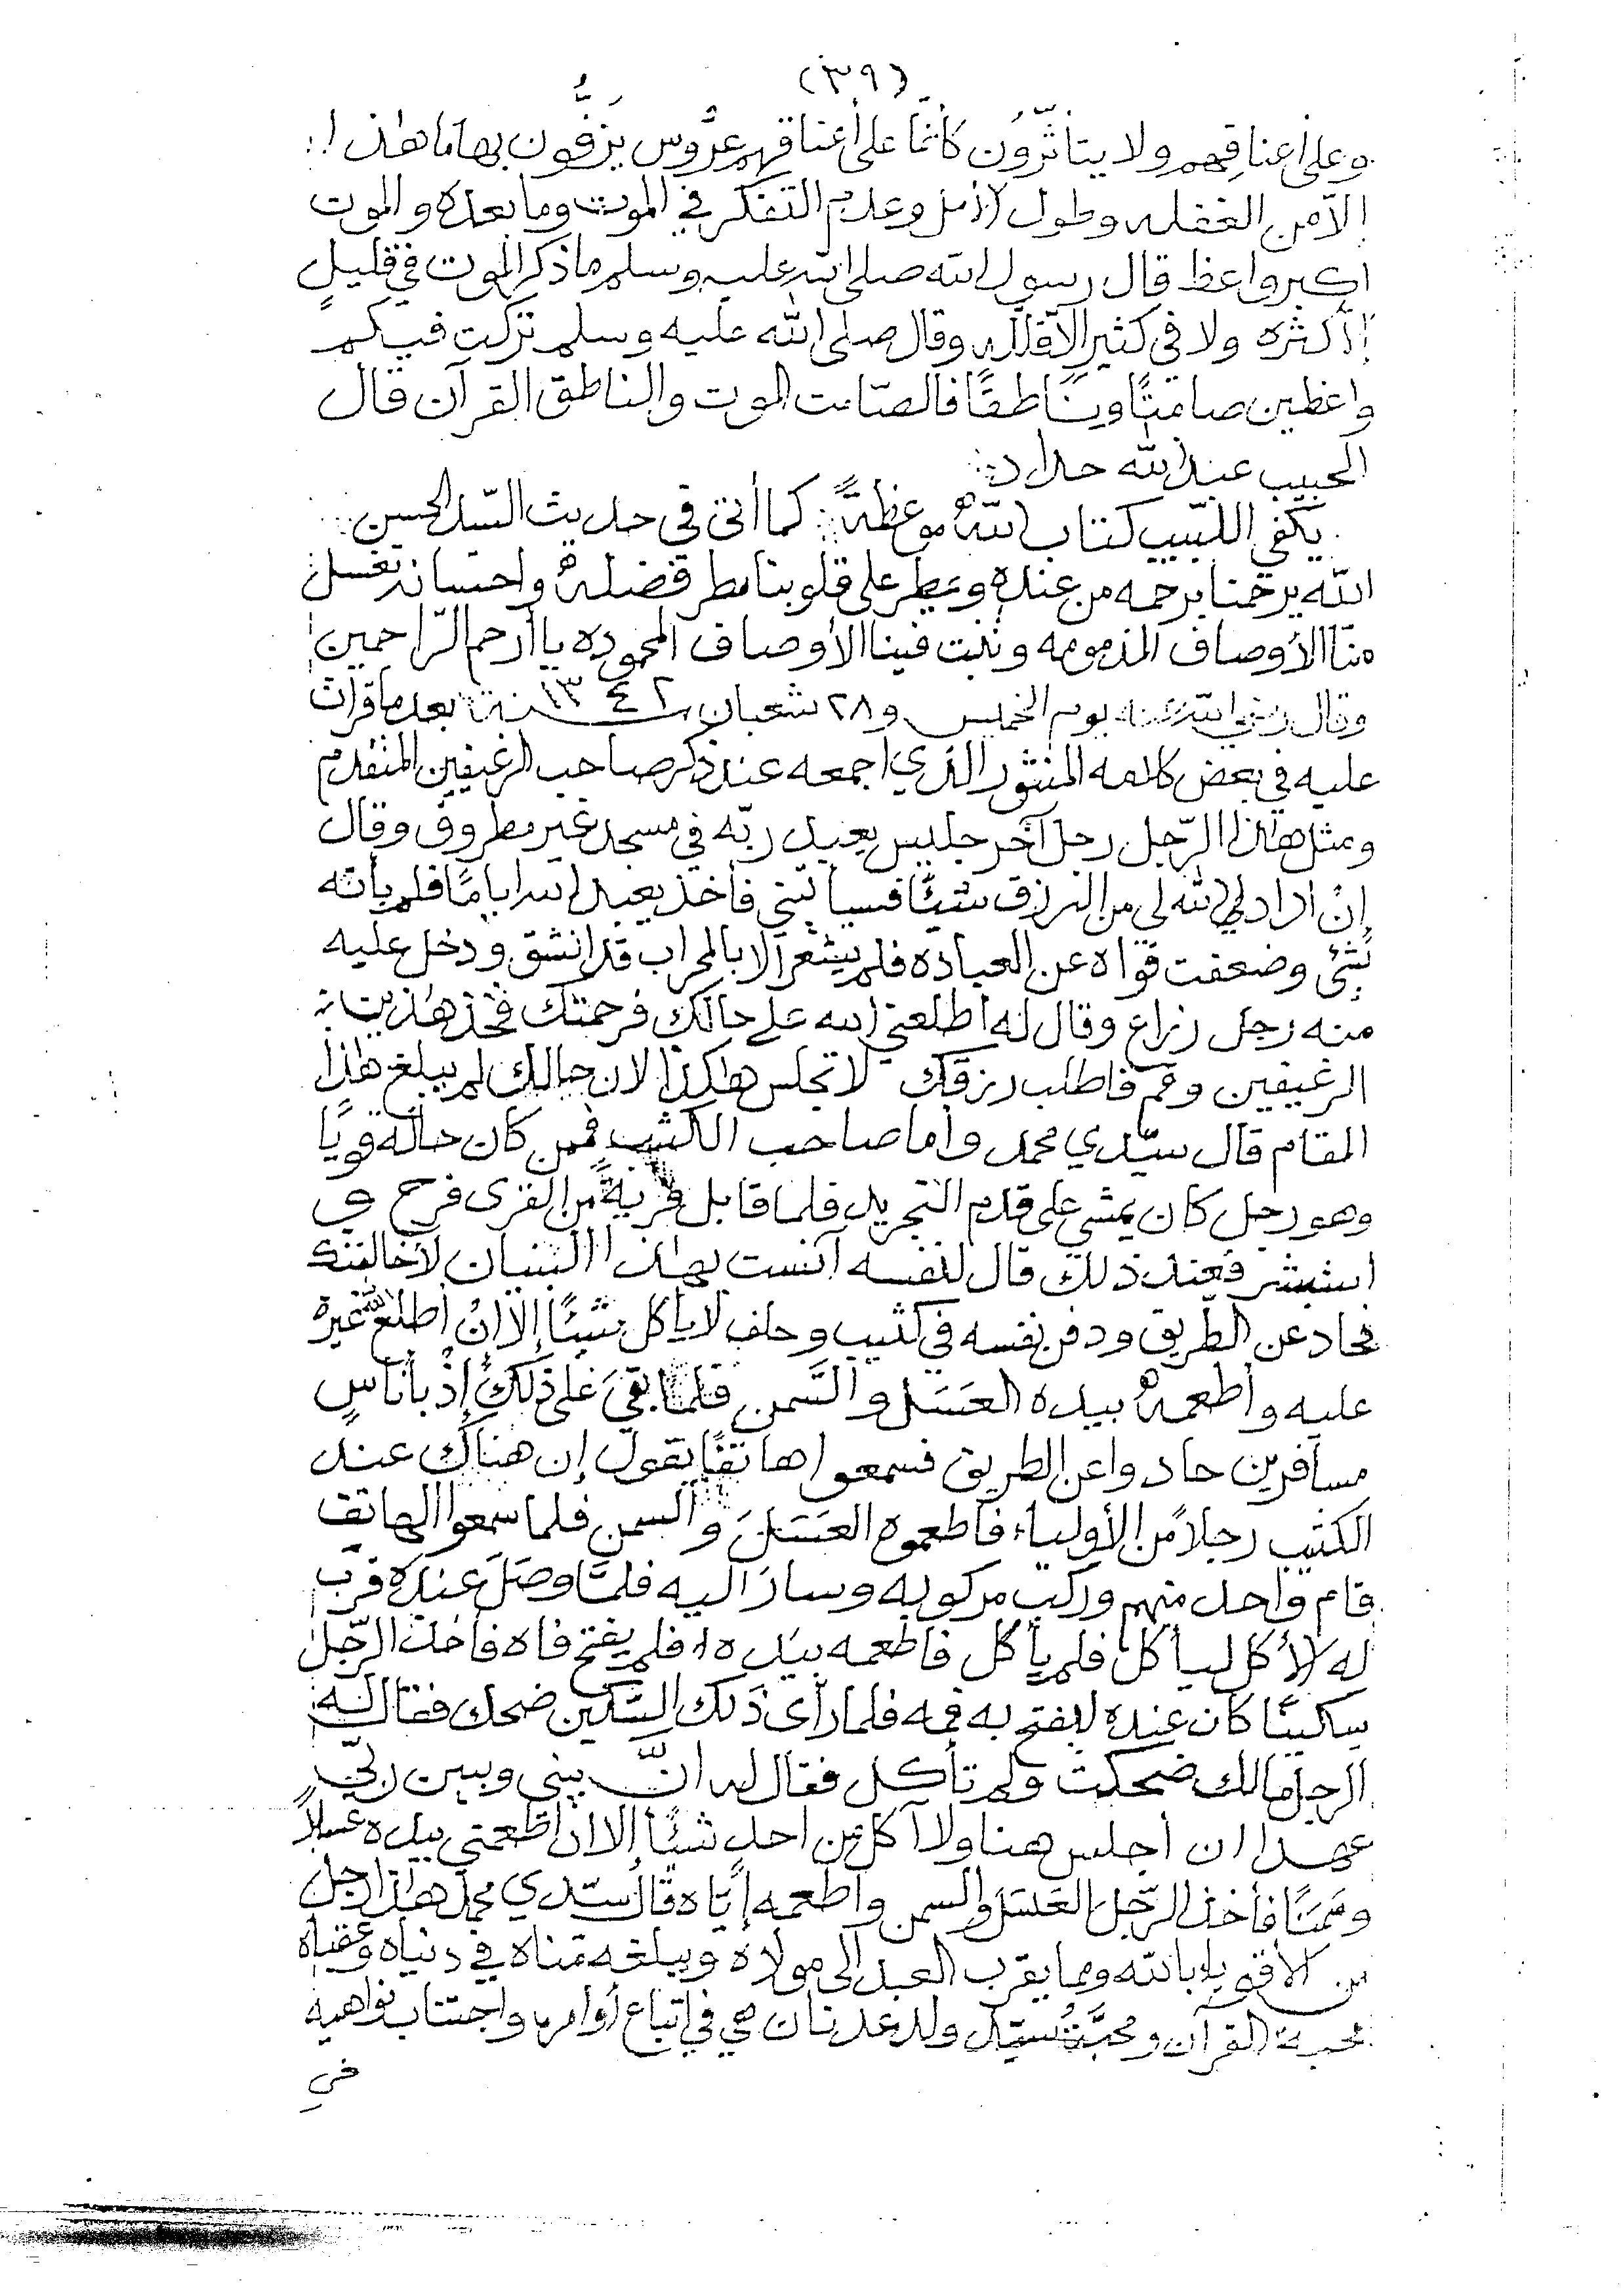 (٣٩)
وعلى أعناقِهم ولا يتأثّرُون كأنّما على أعناقهم عرُوس يَزفُّون بها ما هذا
إلا من الغفله وطول الأمل وعدم التفكر في الموت وما بعده والموت
أكبر واعظ قال رسول الله صلى الله عليه وسلم ما ذكر الموت في قليلٍ
إلّا كثره ولا في كثير إلّا قلّله وقال صلى الله عليه وسلم تركت فيكم
واعظين صامتًا وناطقًا فالصّامت الموت والناطق القرآن قال
الحبيب عبد الله حداد :
يكفي اللبيب كتاب الله موعظةً : كما أتى في حديث السّيد الحسن
الله يرحمنا برحمه من عنده ويمطر على قلوبنا مطر فضله واحسانه تغسل
منّا الأوصاف المذمومه وتثبت فينا الأوصاف المحموده يا أرحم الرّاحمين
وقال رضي الله عنه يوم الخميس و ٢٨ شعبان سنة ١٣٤٢ بعد ما قرأت
عليه في بعض كلامه المنثور الذي اجمعه عند ذكر صاحب الرغيفين المتقدم
ومثل هذا الرّجل رجل آخر جليس يعبد ربّه في مسجد غير مطروق وقال
إنْ أراد لي الله لي من الرزق شيئًا فسيأتيني فأخذ يعبد الله أيامًا فلم يأته
بشئ وضعفت قواه عن العباده فلم يشعر إلا بالمحراب قد انشق ودخل عليه
منه رجل زراع وقال له أطلعني الله على حالك فرحمتك فخذ هذين
الرغيفين وقم فاطلب رزقك لا تجلس هكذا لان حالك لم يبلغ هذا
المقام قال سيّدي محمد وأما صاحب الكثيب فمن كان حاله قويًا
وهو رجل كان يمشي على قدم التجريد فلما قابل قريةً من القرى فرح و
استبشر فعند ذلك قال لنفسه آنست بهذا البنيان لأخالفنك
فحاد عن الطريق ودفن نفسه في كثيب وحلف لا يأكل شيئًا إلا إنْ أطلع الله غيره
عليه وأطعمهُ بيده العَسَل والسَّمن فلمّا بقيَ على ذلك إذْ بأناسٍ
مسافرين حادوا عن الطريق فسمعوا هاتفًا يقول إن هناك عند
الكثيب رجلاً من الأولياء فأطعموه العَسَلَ والسمن فلما سمعوا الهاتف
قام واحد منهم وركب مركوبه وسار اليه فلمَّا وصَلَ عنده قرّب
له الأكل ليأكل فلم يأكل فاطعمه بيده فلم يفتح فاه فأخذ الرّجل
سكينًا كان عنده ليفتح به فمه فلما رأى ذلك السّكين ضحك فقال له
الرجل مالك ضحكت ولم تأكل فقال له انّ بيني وبين ربّي
عهدا ان أجلس هنا ولا آكل من احد شيئًا إلا ان أطعمني بيده عسلاً
وسَمنًا فأخذ الرّجل العَسَل والسمن وأطعمه إيّاه قال سيّدي محمد هذا رجل
من الأقوياء بالله ومما يقرب العبد إلى مولاه ويبلغه مناه في دنياه وعقباه
محبة القرآن ومحبَّة سيّد ولد عدنان هي في اتباع أوامره واجتناب نواهيه
في